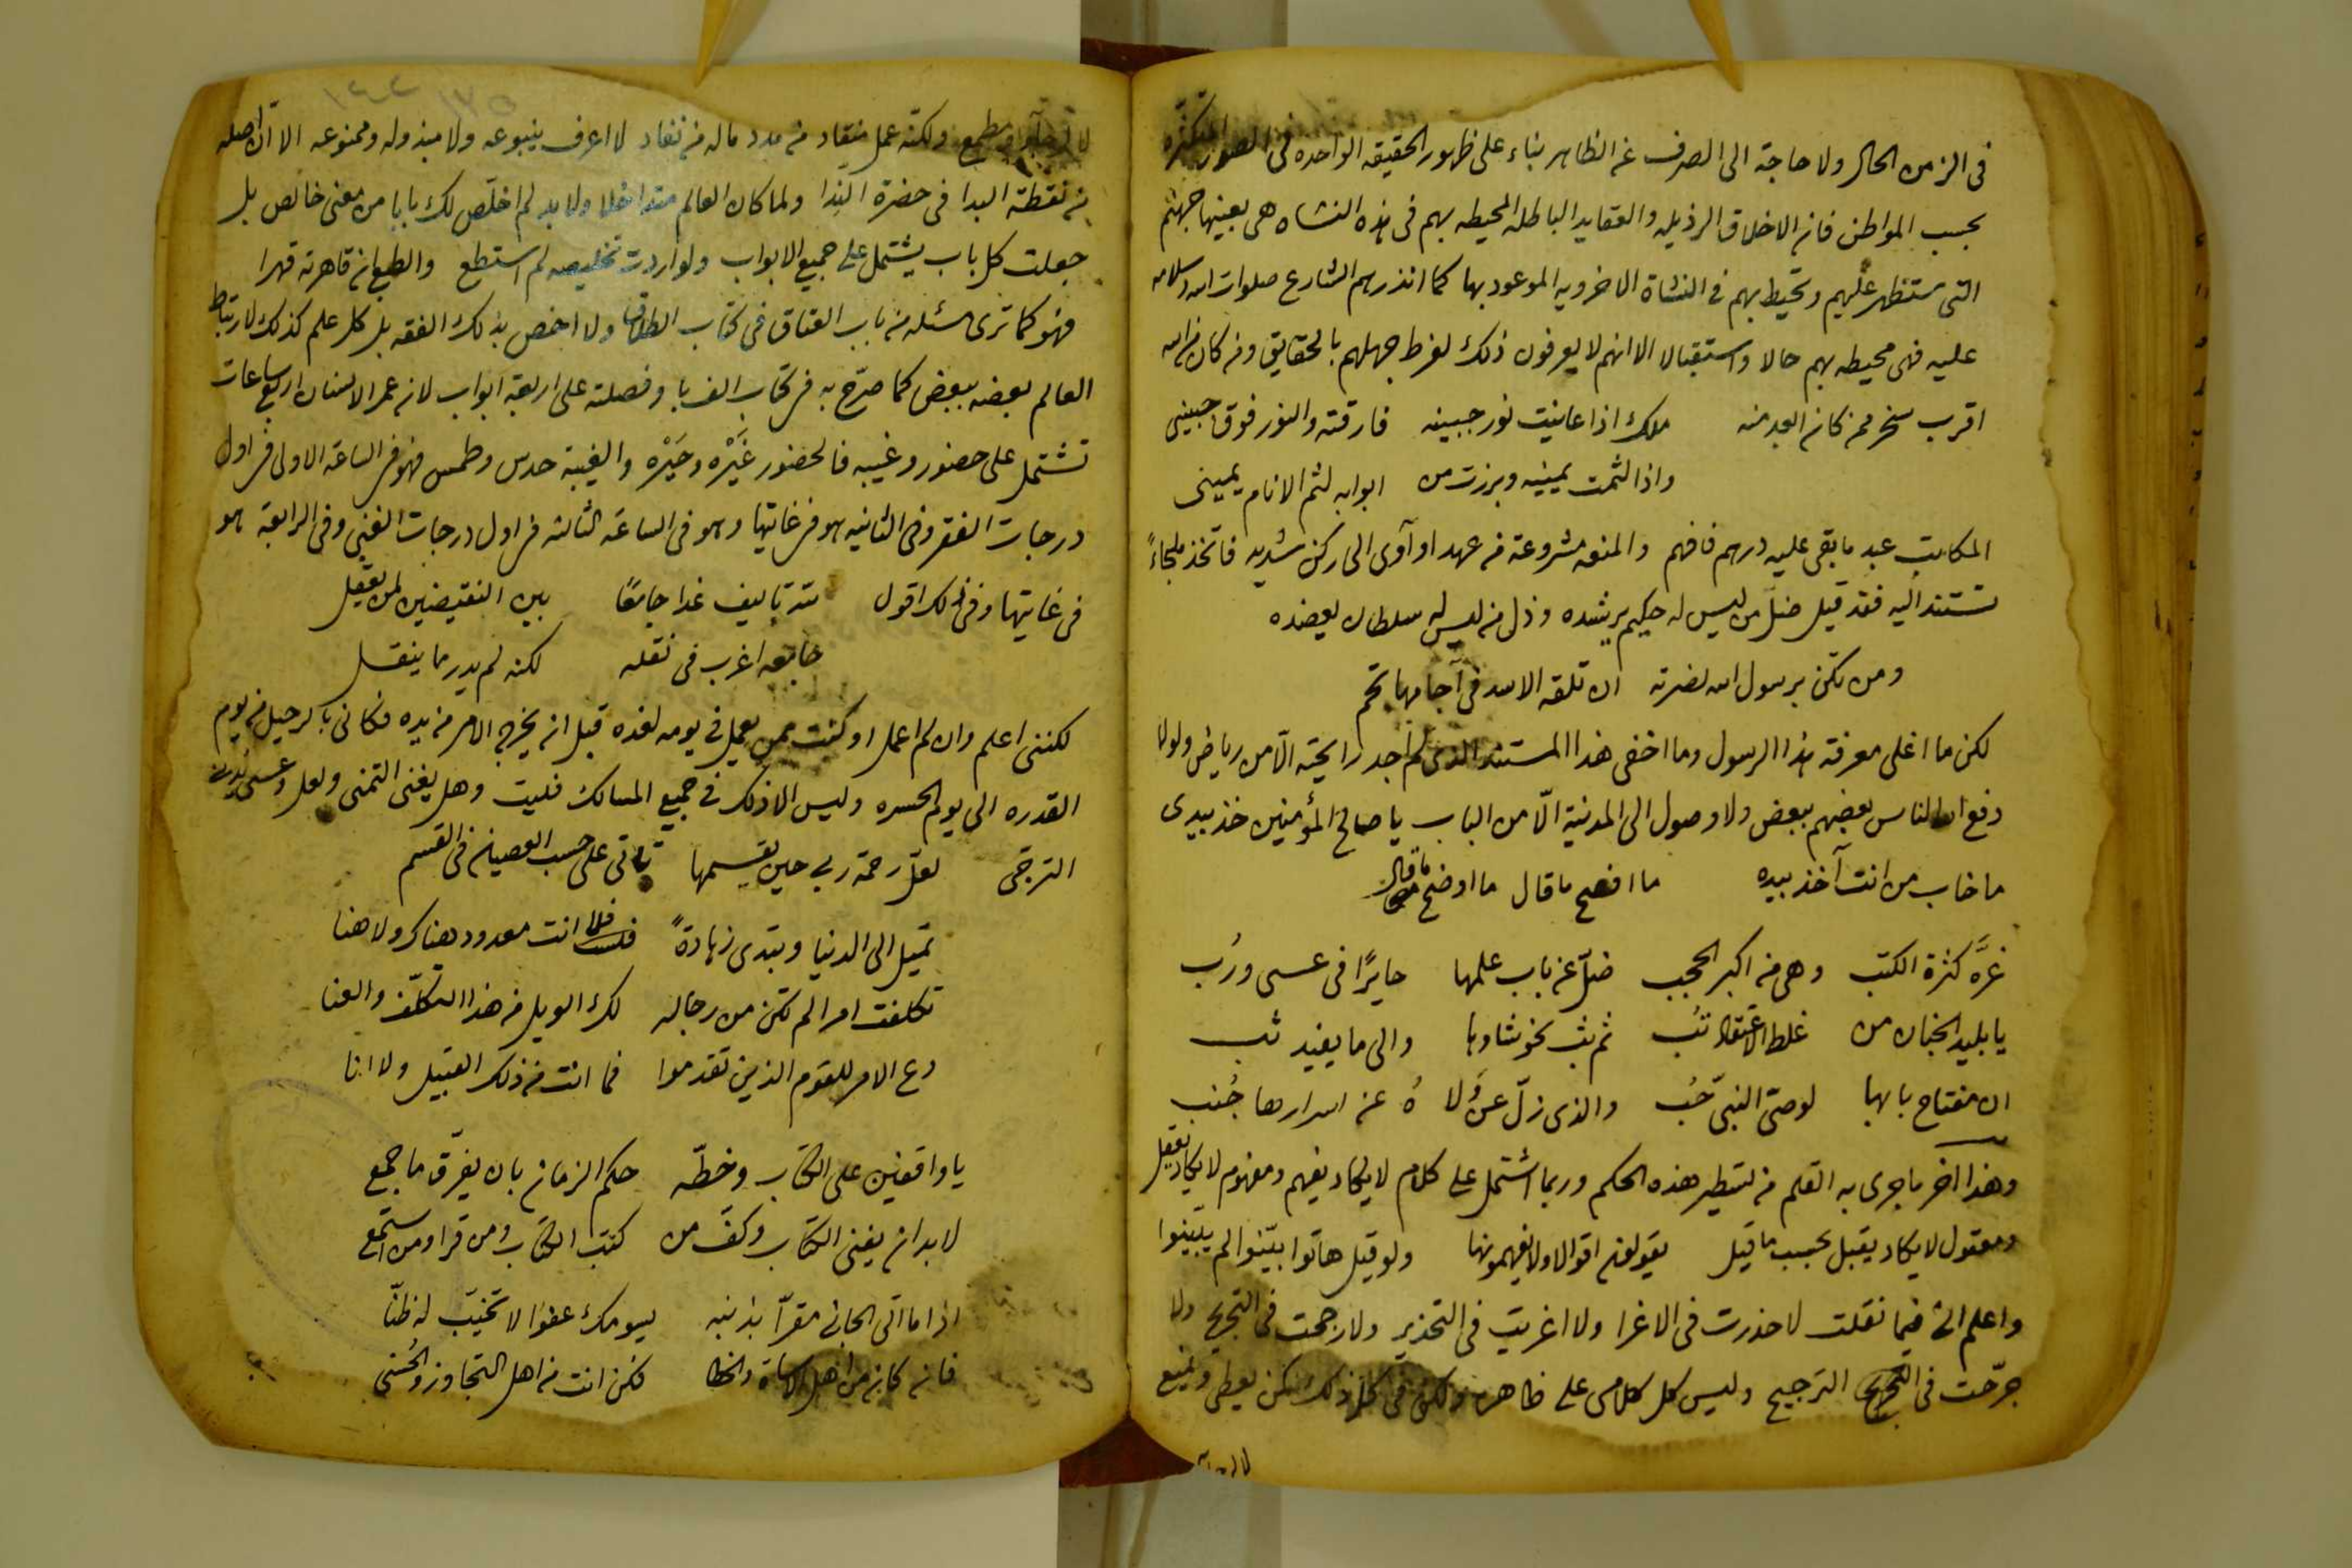 فى الزمن الحال ولا حاجة الى الصرف عن الظاهر بناء على ظهور الحقيقه الواحده فى الصور المتكثره
بحسب المواطن فان الاخلاق الرذيله والعقايد الباطله المحيطه بهم فى هذه النشاه هى بعينها جهنم
التى ستظهر عليهم وتحيط بهم فى النشاة الاخرويه الموعود بها كما انذرهم الشارع صلوات الله وسلامه
عليه فهى محيطه بهم حالا واستقبالا الا انهم لا يعرفون ذلك لفرط جهلهم بالحقايق ومن كان من الله
اقرب سخر من كان ابعد منه ملك اذا عاينت نور جبينه فارقته والنور فوق جبينى
واذا لثمت يمينه وبرزت من ابوابه لثم الانام يمينى
المكاتب عبد ما بقى عليه درهم فافهم والمنعه مشروعة من عهد او آوى الى ركن شديد فاتخذ ملجاءً
تستند اليه فقد قيل ضل من ليس له حكيم يرشده وذل من ليس له سلطان يعضده
ومن تكن برسول الله نصرته ان تلقه الاسد فى آجامها تجم
لكن ما اغلى معرفة هذا الرسول وما اخفى هذا المستند الذى لم اجد رايحته الّا من رياض ولولا
دفع الله الناس بعضهم ببعض ولا وصول الى المدنية الّا من الباب يا صالح المؤمنين خذ بيدى
ما خاب من انت آخذ بيده ما افصح ما قال ما اوضح ما قال
غرَّه كثرة الكتب وهى من اكبر الحجب ضلّ عن باب علمها حايرًا فى عسى ورُب
يا بليد الجنان من غلط الاعتقاد تُب ثم ثب نحو شاوها والى ما يفيد ثب
ان مفتاح بابها لوصىّ النبىّ حُب والذى زلّ عن وَلا هُ عن اسرارها جُنب
وهذا اخر ما جرى به القلم من تسطير هذه الحكم وربما اشتمل على كلام لا يكاد يفهم ومفهوم لا يكاد يعقل
ومعقول لا يكاد يقبل بحسب ما قيل يقولون اقوالا ولا يفهمونها ولو قيل هاتوا بيّنوا لم يبيّنوا
واعلم انى فيما نقلت لا حذرت فى الاغرا ولا اغريت فى التحذير ولا رجحت فى التجريح ولا
جرّحت فى الترجيح وليس كل كلامى على ظاهره ولكن فى كل ذلك كمن يعطى ويمنع
ولكنّه عمل منقاد من مدد ماله من نفاد لا اعرف ينبوعه ولا مبذوله وممنوعه الا ان اصله
من نقطة البدا فى حضرة النِدا ولما كان العالم متداخلا ولا بد لم اخلّص لك بابا من معنى خالص بل
جعلت كل باب يشتمل على جميع الابواب ولو اردت تخليصه لم استطع والطبع ان قاهرته قهرا
فهو كما ترى مسئله من باب العتاق فى كتاب الطلاق ولا اخص بذلك الفقه بل كل علم كذلك لارتباط
العالم بعضه ببعض كما صرّح به فى كتاب الف با وفصلته على اربعة ابواب لان عمر الانسان اربع ساعات
تشتمل على حضور وغيبه فالحضور غَيْره وحَيْره والغيبة حدس وطمس فهو فى الساعة الاولى فى اول
درجات الفقر وفى الثانيه هو فى غايتها وهو فى الساعة الثالثه فى اول درجات الغنى وفى الرابعة هو
فى غايتها وفى ذلك اقول لله تاليف غدا جامعًا بين النقيضين لمن يعقل
جامعه اغرب فى نقله لكنه لم يدر ما ينقل
لكننى اعلم وان لم اعمل او كنت ممن يعمل فى يومه لغده قبل ان يخرج الامر من يده فكانى بالرحيل من يوم
القدره الى يوم الحسره وليس الا ذلك فى جميع المسالك فليت وهل يغنى التمنى ولعل وعسى
الترجّى لعل رحمة ربى حين يقسمها تاتى على حسب العصيان فى القسم
تميل الى الدنيا وتبدى زهادةً فلا انت معدود هناك ولا هنا
تكلفت امرا لم تكن من رجاله لك الويل من هذا التكلّف والعنا
دع الامر للقوم الذين تقدموا فما انت من ذلك القبيل ولا انا
يا واقفين على الكتاب وخطّه حكم الزمان بان يفرّق ما جمع
لا بد ان يفنى الكتاب وكفّ من كتب الكتاب ومن قرا ومن استمع
اذا ما اتى الجانى مقرّا بذنبه يسومك عفوًا لا تخيّب له ظنّا
فان كان من اهل الاساءة والخطا فكن انت من اهل التجاوز والحُسنى